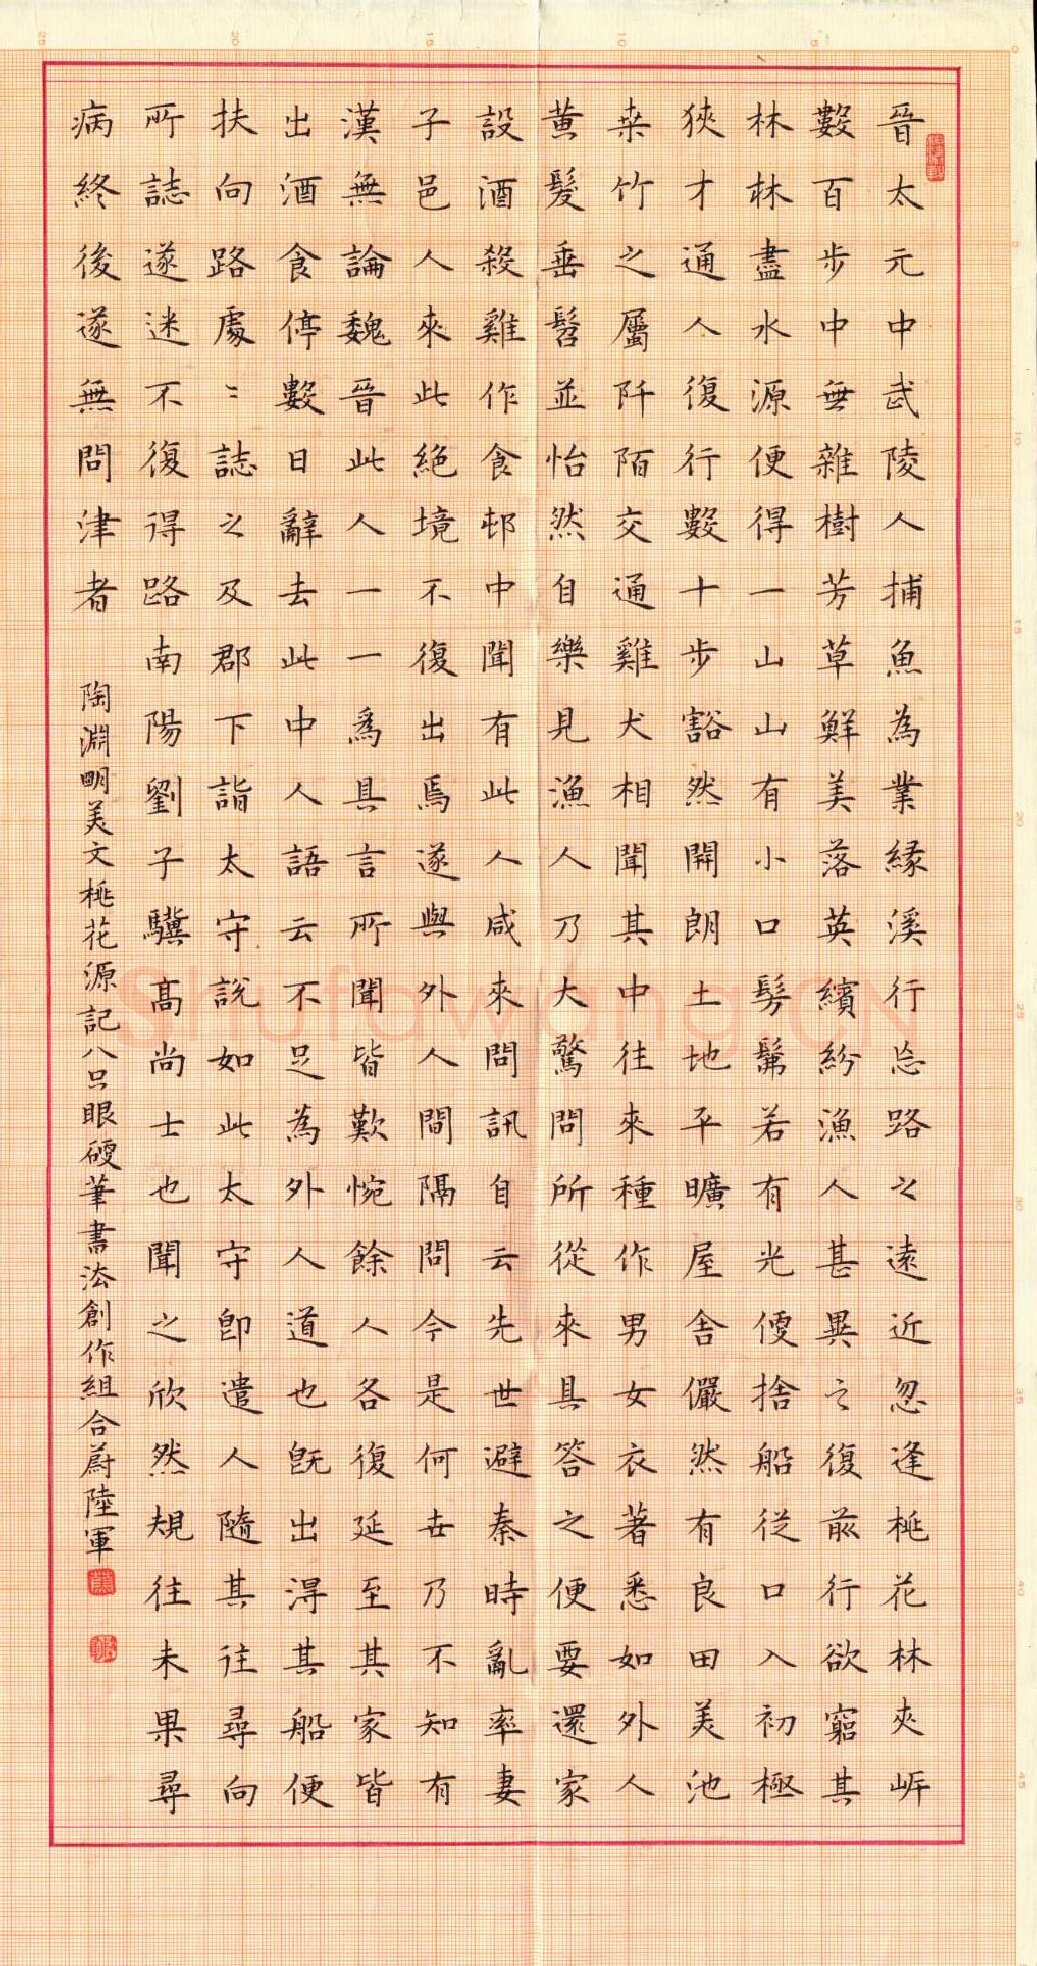 晉太元中武陵人捕魚為業緣溪行忘路之遠近忽逢桃花林夾岸
數百步中無雜樹芳草鮮美落英繽紛漁人甚異之復前行欲窮其
林林盡水源便得一山山有小口髣髴若有光便捨船從口入初極
狹才通人復行數十步豁然開朗土地平曠屋舍儼然有良田美池
桒竹之屬阡陌交通雞犬相聞其中往來種作男女衣著悉如外人
黃髮垂髫並怡然自樂見漁人乃大驚問所從來具答之便要還家
設酒殺雞作食邨中聞有此人咸來問訊自云先世避秦時亂率妻
子邑人來此絕境不復出焉遂與外人間隔問今是何世乃不知有
漢無論魏晉此人一一爲具言所聞皆歎惋餘人各復延至其家皆
出酒食停數日辭去此中人語云不足為外人道也既出得其船便
扶向路處〻誌之及郡下詣太守說如此太守即遣人隨其往尋向
所誌遂迷不復得路南陽劉子驥高尚士也聞之欣然規往未果尋
病終後遂無問津者
陶淵明美文桃花源記八只眼硬筆書法創作組合蔚陸軍
Shufawang.CN